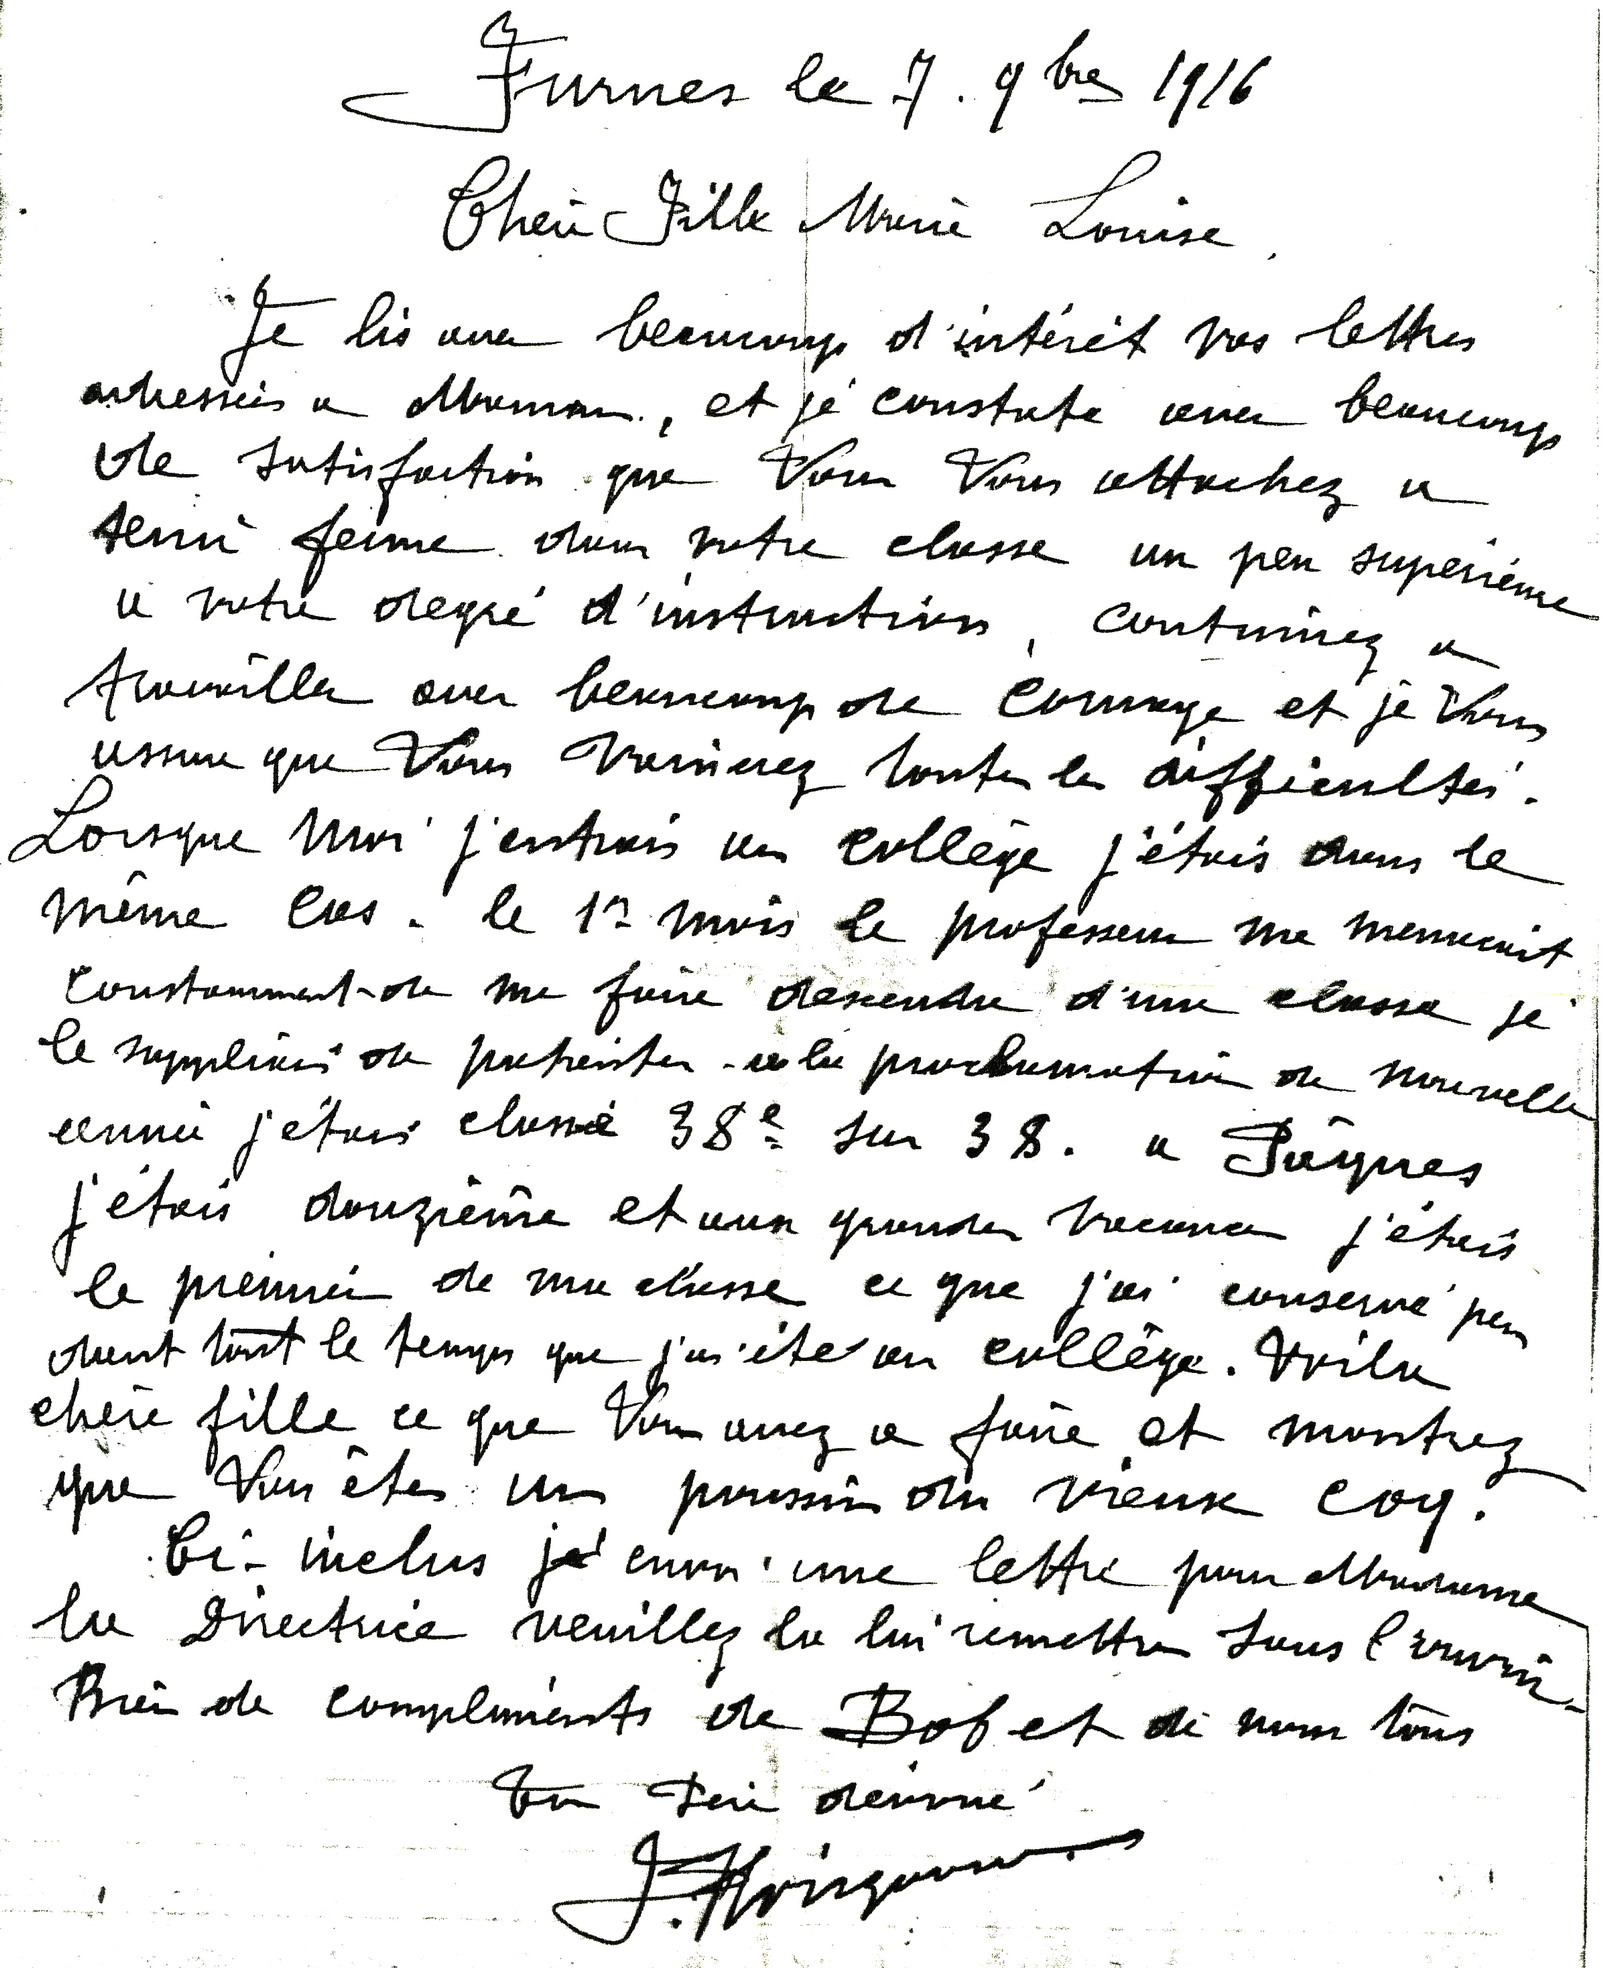 Furnes le 7. 9bre 1916
Chère Fille Marie Louise,
Je lis avec beaucoup d'intérêt vos lettres
adressées a Maman, et je constate avec beaucoup
de satisfaction que Vous Vous attachez a
tenir ferme dans votre classe un peu supérieure
a votre degré d'instruction, continuez a
travailler avec beaucoup de courage et je Vous
assure que Vous vaincrez toutes les difficultés.
Lorsque moi j'entrais au collège j'étais dans le
même cas. le 1r mois le professeur me menacait
constamment de me faire descendre d'une classe je
le suppliais de patienter - a la proclamation de nouvelle
année j'étais classé 38e sur 38. a Pâques
j'étais douzième et aux grandes vacances j'étais
le premier de ma classe ce que j'ai conservé pen
dant tout le temps que j'ai été au collège. Voila
chère fille ce que Vous avez a faire et montrez
que Vous êtes un poussin du vieux coq.
Ci-inclus j'envoi une lettre pour Madame
la Directrice veuillez la lui remettre sans l'ouvrir.
Bien de compliments de Bob et de nous tous
Ton Père dévoué
J.